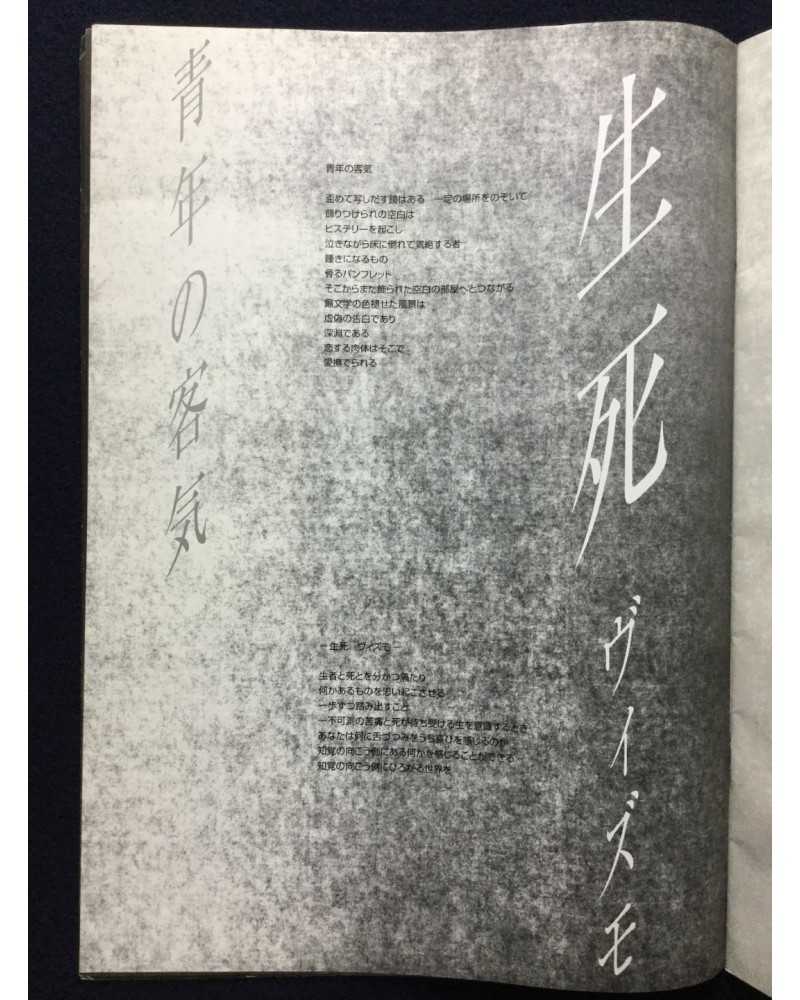 生死 ヴィズモ
青年の客気
青年の客気
歪めて写しだす鏡はある 一定の場所をのぞいて
飾りつけられの空白は
ヒステリーを起こし
泣きながら床に倒れて気絶する者
囁きになるもの
骨るパンフレット
そこからまた飾られた空白の部屋へとつながる
無文学の色褪せた風景は
虚偽の告白であり
深淵である
恋する肉体はそこで
愛撫でられる
－生死 ヴィズモ－
生者と死とを分かつ隔たり
何かあるものを思い起こさせる
一歩ずつ踏み出すこと
一不可測の苦痛と死が待ち受ける生を意識するとき
あなたは何に舌づつみをうち喜びを感じるのか
知覚の向こう側にある何かを感じることができる
知覚の向こう側にひろがる世界を